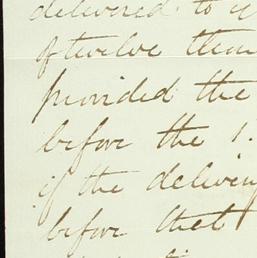 delivered to
of twelve
provided the
before the 1.
if the delivery
before that